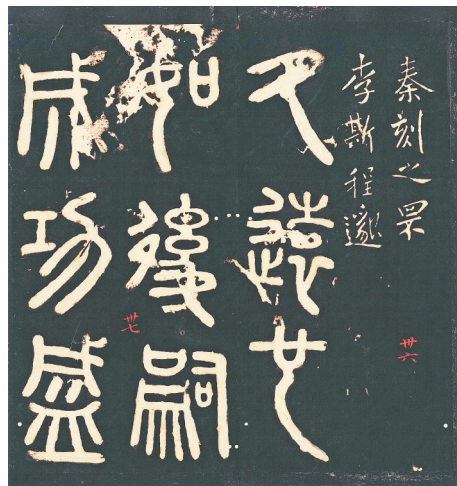 秦刻之罘
李斯程邈
卅六
久遠也
如後嗣
卅七
成功盛